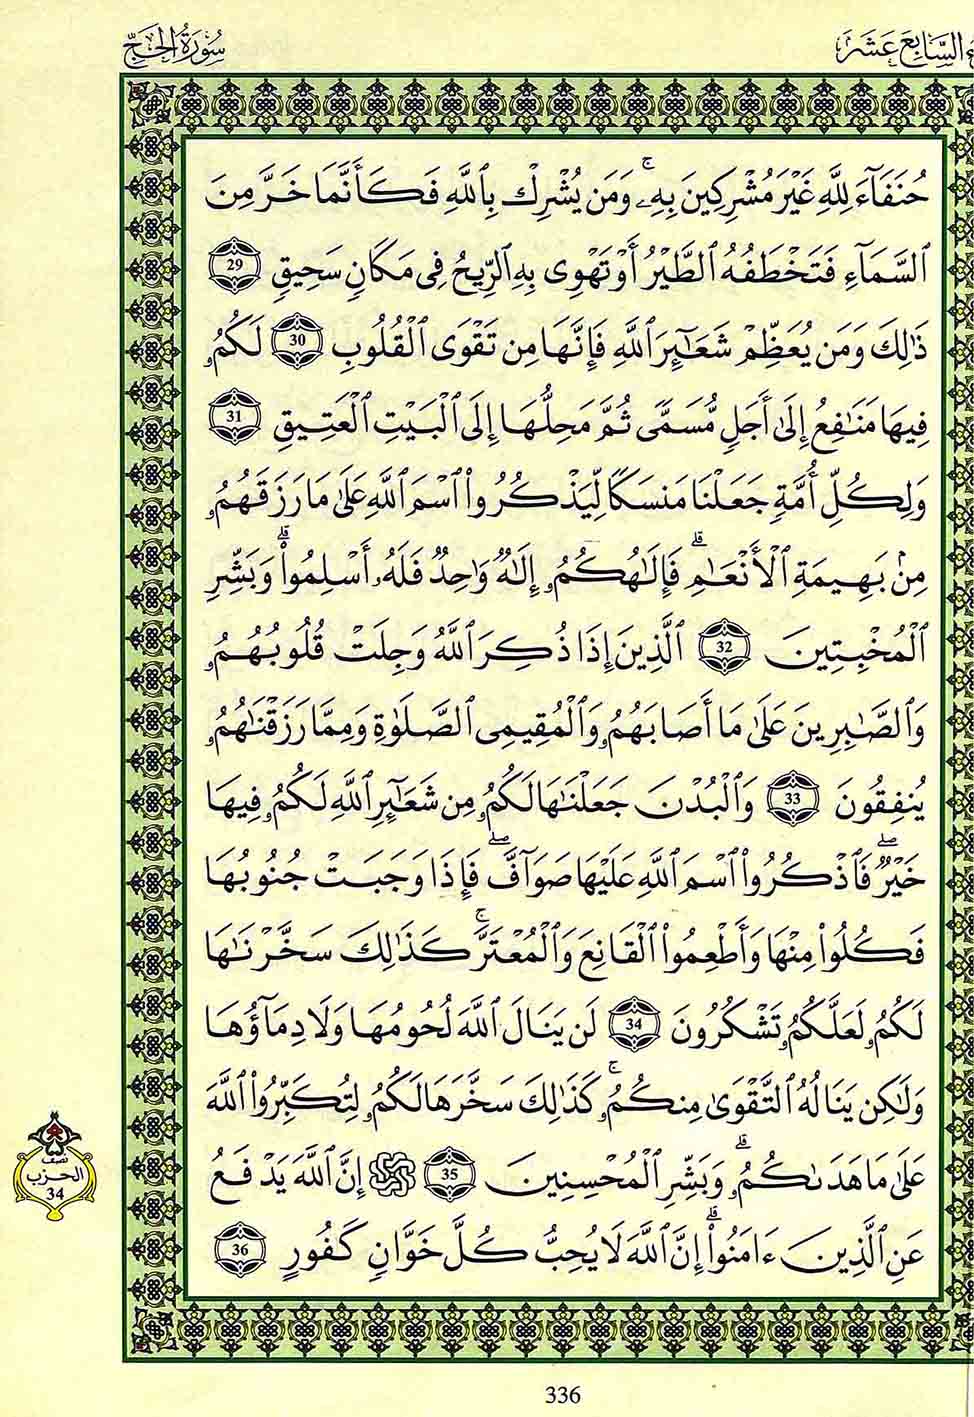 السَّابِعَ عَشَرَ
سُورَةُ الحَجّ
حُنَفَآءَ لِلَّهِ غَيْرَ مُشْرِكِينَ بِهِۦۚ وَمَن يُشْرِكْ بِٱللَّهِ فَكَأَنَّمَا خَرَّ مِنَ
ٱلسَّمَآءِ فَتَخْطَفُهُ ٱلطَّيْرُ أَوْ تَهْوِى بِهِ ٱلرِّيحُ فِى مَكَانٍ سَحِيقٍ 29
ذَٰلِكَ وَمَن يُعَظِّمْ شَعَٰٓئِرَ ٱللَّهِ فَإِنَّهَا مِن تَقْوَى ٱلْقُلُوبِ 30 لَكُمُۥ
فِيهَا مَنَٰفِعُ إِلَىٰٓ أَجَلٍ مُّسَمًّى ثُمَّ مَحِلُّهَا إِلَى ٱلْبَيْتِ ٱلْعَتِيقِ 31
وَلِكُلِّ أُمَّةٍ جَعَلْنَا مَنسَكًا لِّيَذْكُرُوا۟ ٱسْمَ ٱللَّهِ عَلَىٰ مَا رَزَقَهُمُۥ
مِنۢ بَهِيمَةِ ٱلْأَنْعَٰمِۗ فَإِلَٰهُكُمُۥ إِلَٰهٌ وَٰحِدٌ فَلَهُۥ أَسْلِمُوا۟ۗ وَبَشِّرِ
ٱلْمُخْبِتِينَ 32 ٱلَّذِينَ إِذَا ذُكِرَ ٱللَّهُ وَجِلَتْ قُلُوبُهُمُۥ
وَٱلصَّٰبِرِينَ عَلَىٰ مَا أَصَابَهُمُۥ وَٱلْمُقِيمِى ٱلصَّلَوٰةِ وَمِمَّا رَزَقْنَٰهُمُۥ
يُنفِقُونَ 33 وَٱلْبُدْنَ جَعَلْنَٰهَا لَكُمُۥ مِن شَعَٰٓئِرِ ٱللَّهِ لَكُمُۥ فِيهَا
خَيْرٌۖ فَٱذْكُرُوا۟ ٱسْمَ ٱللَّهِ عَلَيْهَا صَوَآفَّۖ فَإِذَا وَجَبَتْ جُنُوبُهَا
فَكُلُوا۟ مِنْهَا وَأَطْعِمُوا۟ ٱلْقَانِعَ وَٱلْمُعْتَرَّۚ كَذَٰلِكَ سَخَّرْنَٰهَا
لَكُمُۥ لَعَلَّكُمُۥ تَشْكُرُونَ 34 لَن يَنَالَ ٱللَّهَ لُحُومُهَا وَلَا دِمَآؤُهَا
وَلَٰكِن يَنَالُهُ ٱلتَّقْوَىٰ مِنكُمُۥۚ كَذَٰلِكَ سَخَّرَهَا لَكُمُۥ لِتُكَبِّرُوا۟ ٱللَّهَ
عَلَىٰ مَا هَدَىٰكُمُۥۗ وَبَشِّرِ ٱلْمُحْسِنِينَ 35 ۞ إِنَّ ٱللَّهَ يَدْفَعُ
عَنِ ٱلَّذِينَ ءَامَنُوا۟ۗ إِنَّ ٱللَّهَ لَا يُحِبُّ كُلَّ خَوَّانٍ كَفُورٍ 36
نصف
الحزب
34
336